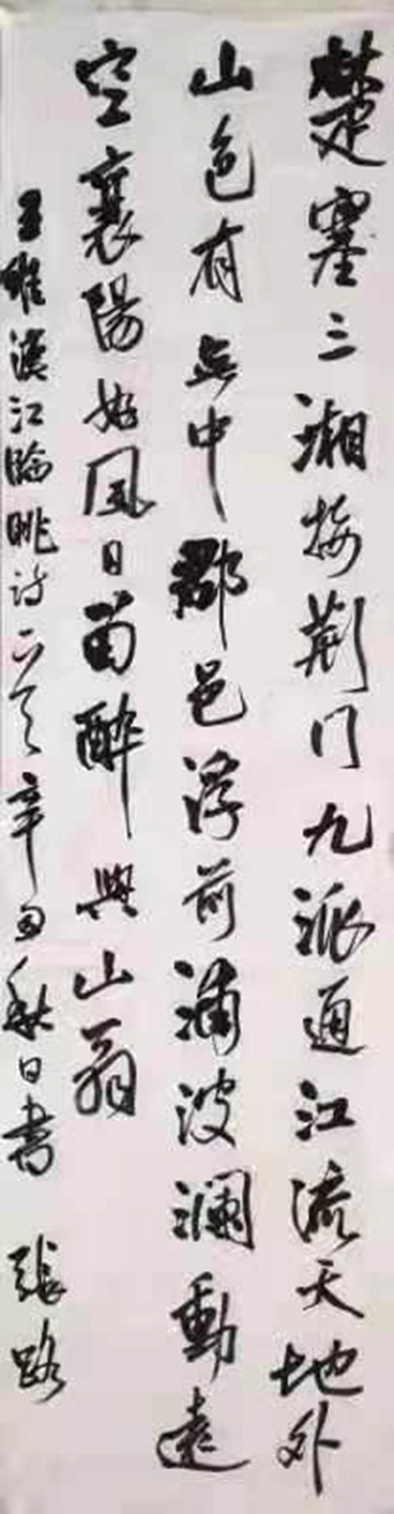 楚塞三湘接荊門九派通江流天地外
山色有無中郡邑浮前浦波瀾動遠
空襄陽好風日留醉與山翁
王維漢江臨眺詩辛丑秋日書 張路